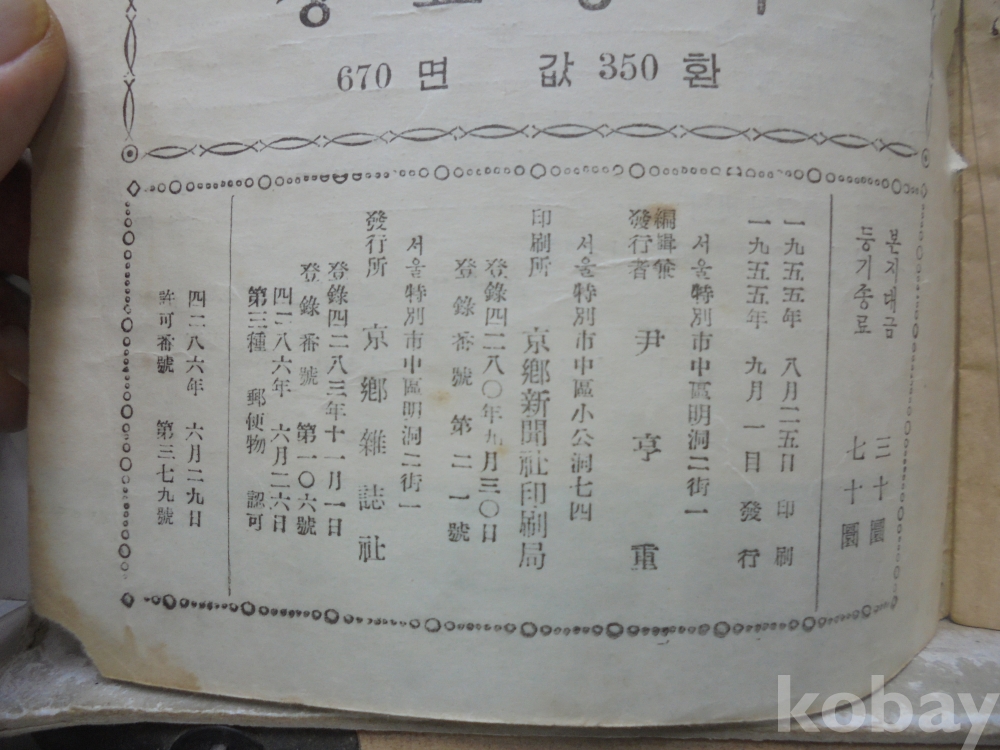 670 면 값 350 환
본지대금 三十圜
등기종료 七十圜
一九五五年 八月二五日 印刷
一九五五年 九月一日 發行
서울特別市中區明洞二街一
編輯兼
發行者 尹亨重
서울特別市中區小公洞七四
印刷所 京鄕新聞社印刷局
登錄四二八〇年九月三〇日
登錄番號 第二一號
서울特別市中區明洞二街一
發行所 京鄕雜誌社
登錄四二八三年十一月一日
登錄番號 第一〇六號
四二八六年 六月二六日
第三種 郵便物 認可
四二八六年 六月二九日
許可番號 第三七九號
kobay